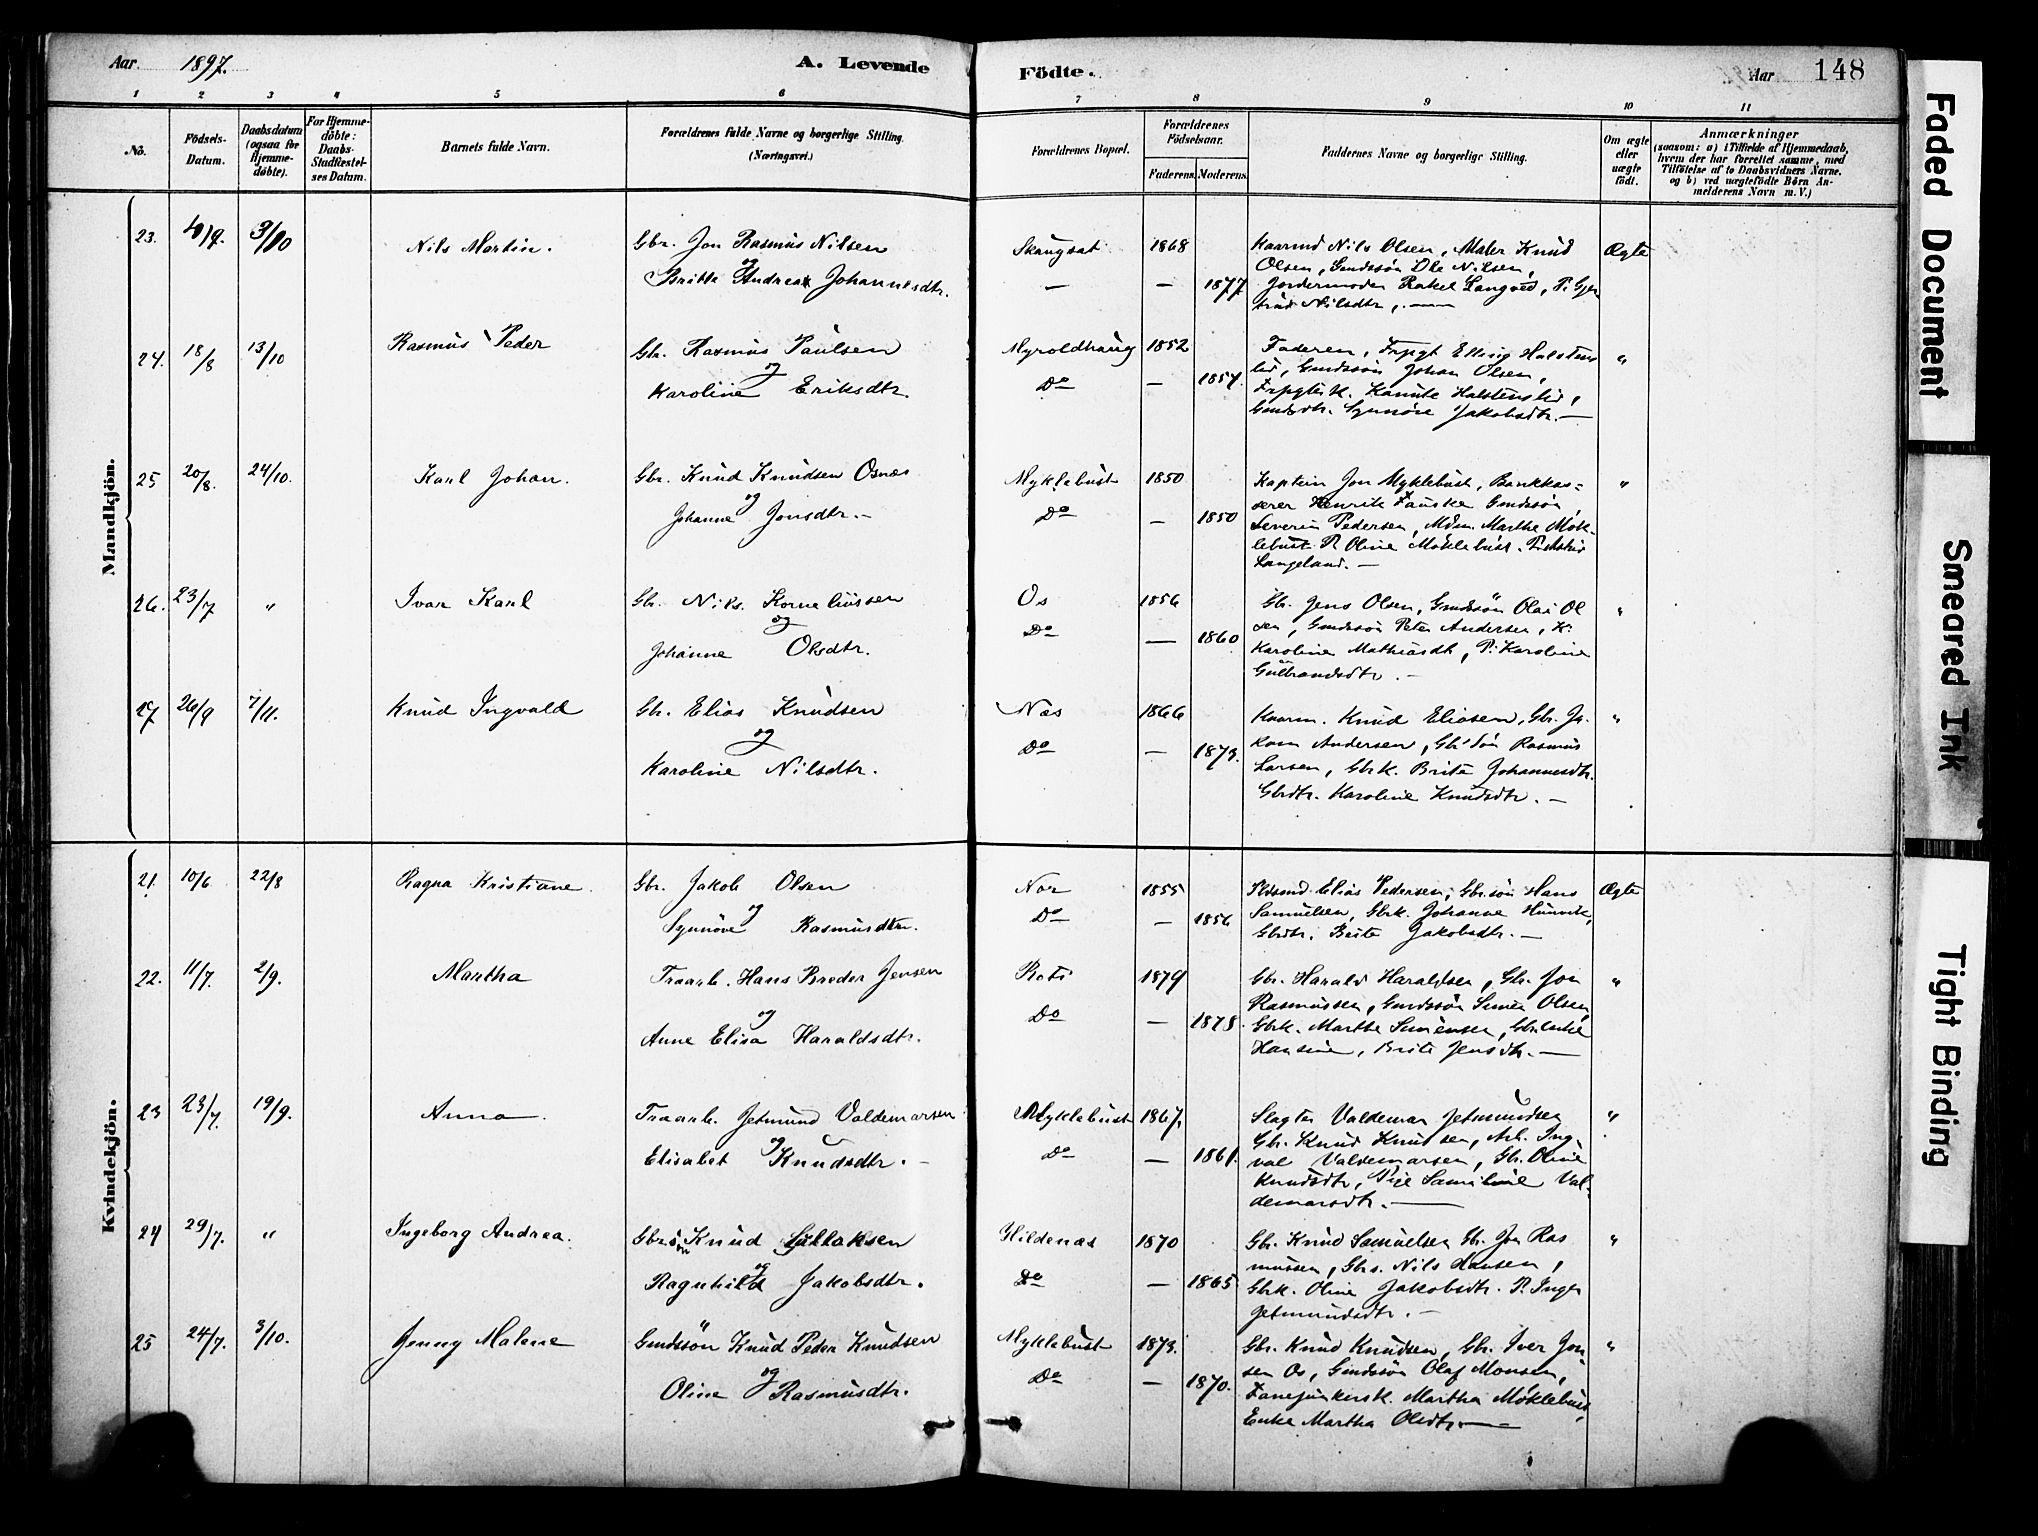 Aar. 1897. A. Levende Födte. Aar 148
1 2 3 4 5 6 7 8 9 10 11
No. Födsels-Datum. Daabsdatum (ogsaa for Hjemme-döbte). For Hjemme-döbte: Daabs-Stadfæstel-ses Datum. Barnets fulde Navn. Forældrenes fulde Navne og borgerlige Stilling. (Næringsvei.) Forældrenes Bopæl. Forældrenes Födselsaar. Faderens. Moderens. Faddernes Navne og borgerlige Stilling. Om ægte eller uægte födt. Anmærkninger (saasom: a) i Tilfælde af Hjemmedaab, hvem der har forrettet samme, med Tilföielse af to Daabsvidners Navne. og b) ved uægtefödte Börn An-melderens Navn m. V.)
Mandkjön.
23. 3/10 Nils Martin. Gbr. Jon Rasmus Nilsen 1868 Nils Olsen, Maler Knud Ægte
og Olsen, Gmdssön Ole Nilsen,
Britte Andrea Johannesdtr. — — 1877 Jordermoder Rakel Langved, P. Gjer
trud Nilsdtr. —
24. 18/8 13/10 Rasmus Peder Gbr. Rasmus Paulsen Myroldhaug 1852 Faderen, Frpgt Elling Halstens „
og lid, Gmdssön Johan Olsen,
Karoline Eriksdtr. Do — 1857. Kanute Halstenslid,
Gmdsdtr. Synnöve Jakobsdtr. —
25 20/8. 24/10. Karl Johan. Gbr. Knud Knudsen Osnæs Myklebust 1850 Kaptein Jon Myklebust, Bankkas= „
og serer Henrik Fauske Gmdssön
Johanne Jonsdtr. — Do — 1850 Severin Pedersen, Mdm. Marthe Mök-
lebust P. Oline Möklebust. P.
Langeland. —
26. 23/7 „ Ivar Karl Gbr. Nils. Korneliussen Os 1856 Gbr. Jens Olsen, Gmdssön Olai Ol „
og Do sen, Gmdssön Peter Andersen, K.
Johanne Olsdtr. — 1860 Karoline Mathiasdt, P. Karoline
Gulbrandsdtr. —
27 26/9 7/11. Knud Ingvald Gbr. Elias Knudsen Næs 1866 Kaarm. Knud Eliasen, Gbr. Ja- „
og kom Andersen, Gbrsön Rasmus
Karoline Nilsdtr. Do — 1873. Larsen, Gbrk. Brite Johannesdtr.
Gbrdtr. Karoline Knudsdtr. —
Kvindekjön.
21. 10/6 22/8 Ragna Kristiane. Gbr. Jakob Olsen Nor 1855 Elias Pedersen, Gbrsön Hans Ægte
og Samuelsen, Gbrk. Johanne Hunvik,
Synnöve Rasmusdtr. Do — 1856 Gbrdtr. Brite Jakobsdtr. —
22. 11/7. 2/9. Martha Fraarb. Hans Breder Jensen 1879 Gbr. Harald Haraldsen, Gbr. Jon „
og Rasmussen, Gmdssön Simen Olsen,
Anne Elisa Haraldsdtr. Do — 1878. Gbrk. Marthe Simensen, Gbrenke
Hansine, Brite Jensdtr. —
23 23/7. 19/9. Anna. Fraarb. Jetmund Valdemarsen Myklebust 1867. Slagter Valdemar Jetmundsen „
og Gbr. Knud Knudsen, Arb. Ing-
Elisabet Knudsdtr. — Do — 1861. val Valdemarsen, Gbr. Oline
Knudsdtr, Pige Samiline Val-
demarsdtr. —
24 29/7. „ Ingeborg Andrea. Gbrsön Knud Hildenæs 1870 Gbr. Knud Samuelsen Gbr. Jon Ras „
og mussen, Gbrs. Nils Hansen,
Ragnhild Jakobsdtr. Do — 1865 Gbrk. Oline Jakobsdtr. P. Inger
Jetmundsdtr. —
25 24/7. 3/10. Jenny Malene Gmdssön Knud Peder Knudsen Myklebust 1873. Gbr. Knud Knudsen, Gbr. Iver Jon- „
og sen Os, Gmdssön Olaf Monsen,
Oline Rasmusdtr. Do — 1870. Fanejunkersk. Martha Möklebust,
Enke Martha Olsdtr. —
Faded Document
Smeared Ink
Tight Binding